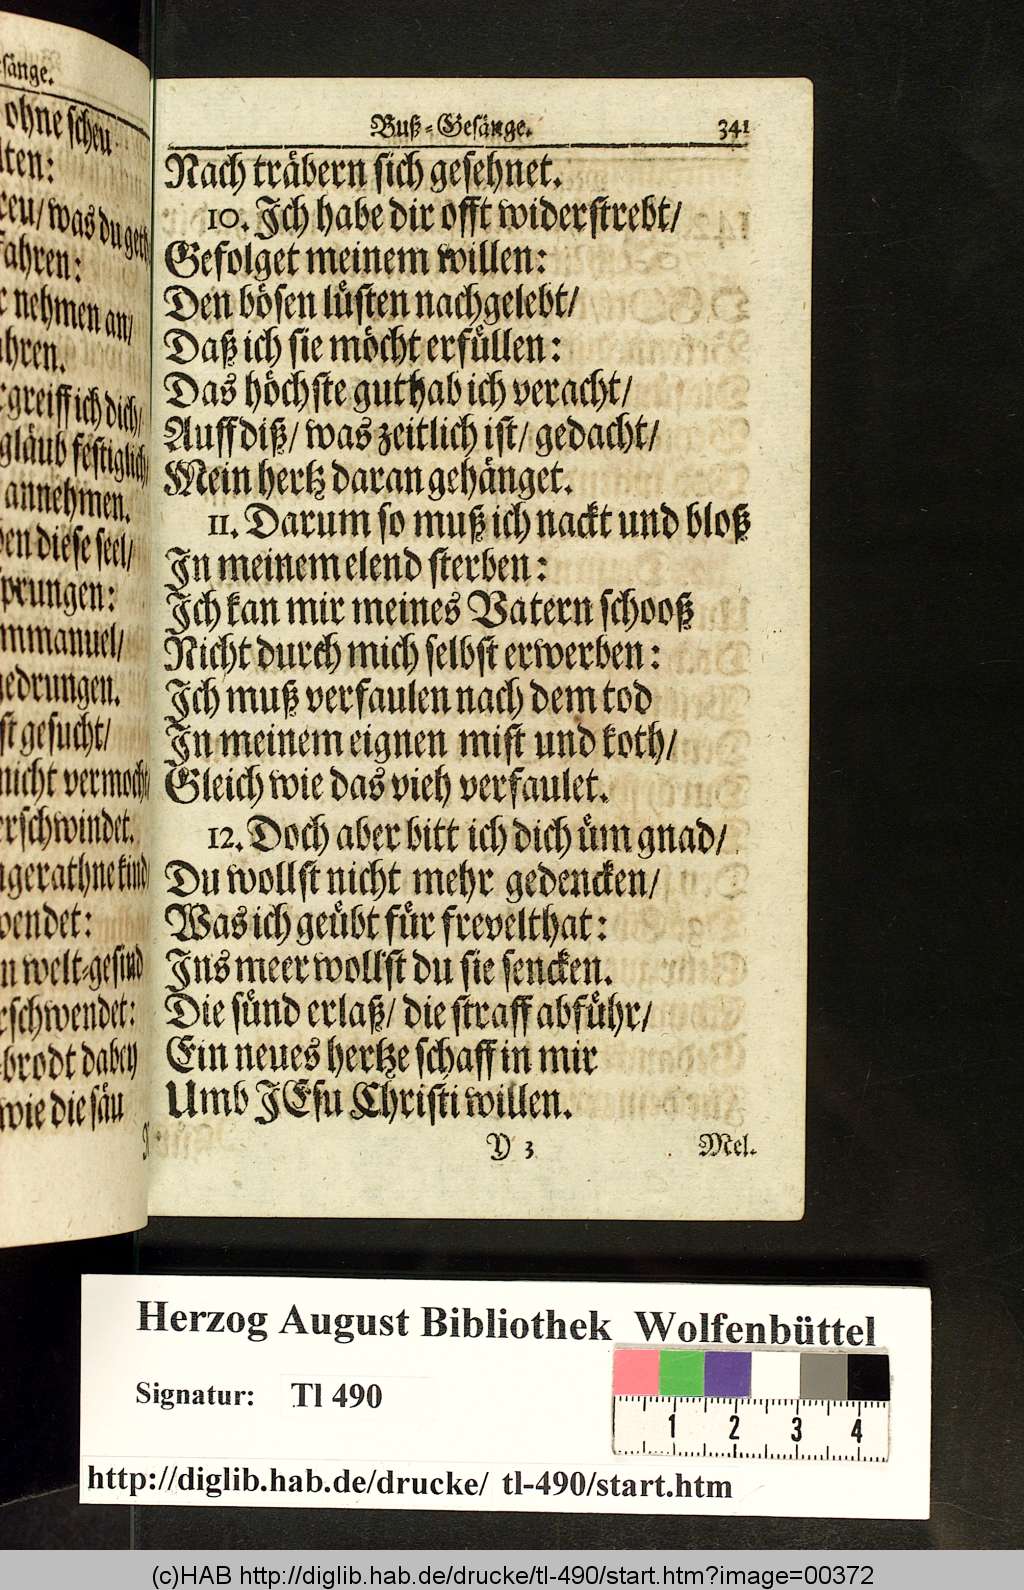 sänge.
ohne scheu
lten:
reu/ was du
fahren:
nehmen an/
ahren.
greiff ich dich/
gläub festiglich/
annehmen.
den diese seel/
sprungen:
mmanuel/
gedrungen.
st gesucht/
nicht vermocht/
erschwindet.
ngerathne kind
wendet:
n welt-gesind
rschwendet:
brodt dabey
wie die säu
Buß-Gesänge. 341
Nach träbern sich gesehnet.
10. Ich habe dir offt widerstrebt/
Gefolget meinem willen:
Den bösen lüsten nachgelebt/
Daß ich sie möcht erfüllen:
Das höchste gut hab ich veracht/
Auff diß/ was zeitlich ist/ gedacht/
Mein hertz daran gehänget.
11. Darum so muß ich nackt und bloß
In meinem elend sterben:
Ich kan mir meines Vatern schooß
Nicht durch mich selbst erwerben:
Ich muß verfaulen nach dem tod
In meinem eignen mist und koth/
Gleich wie das vieh verfaulet.
12. Doch aber bitt ich dich üm gnad/
Du wollst nicht mehr gedencken/
Was ich geübt für frevelthat:
Ins meer wollst du sie sencken.
Die sünd erlaß/ die straff abführ/
Ein neues hertze schaff in mir
Umb JEsu Christi willen.
Y 3 Mel.
Herzog August Bibliothek Wolfenbüttel
Signatur: Tl 490
1 2 3 4
http://diglib.hab.de/drucke/ tl-490/start.htm
(c)HAB http://diglib.hab.de/drucke/tl-490/start.htm?image=00372